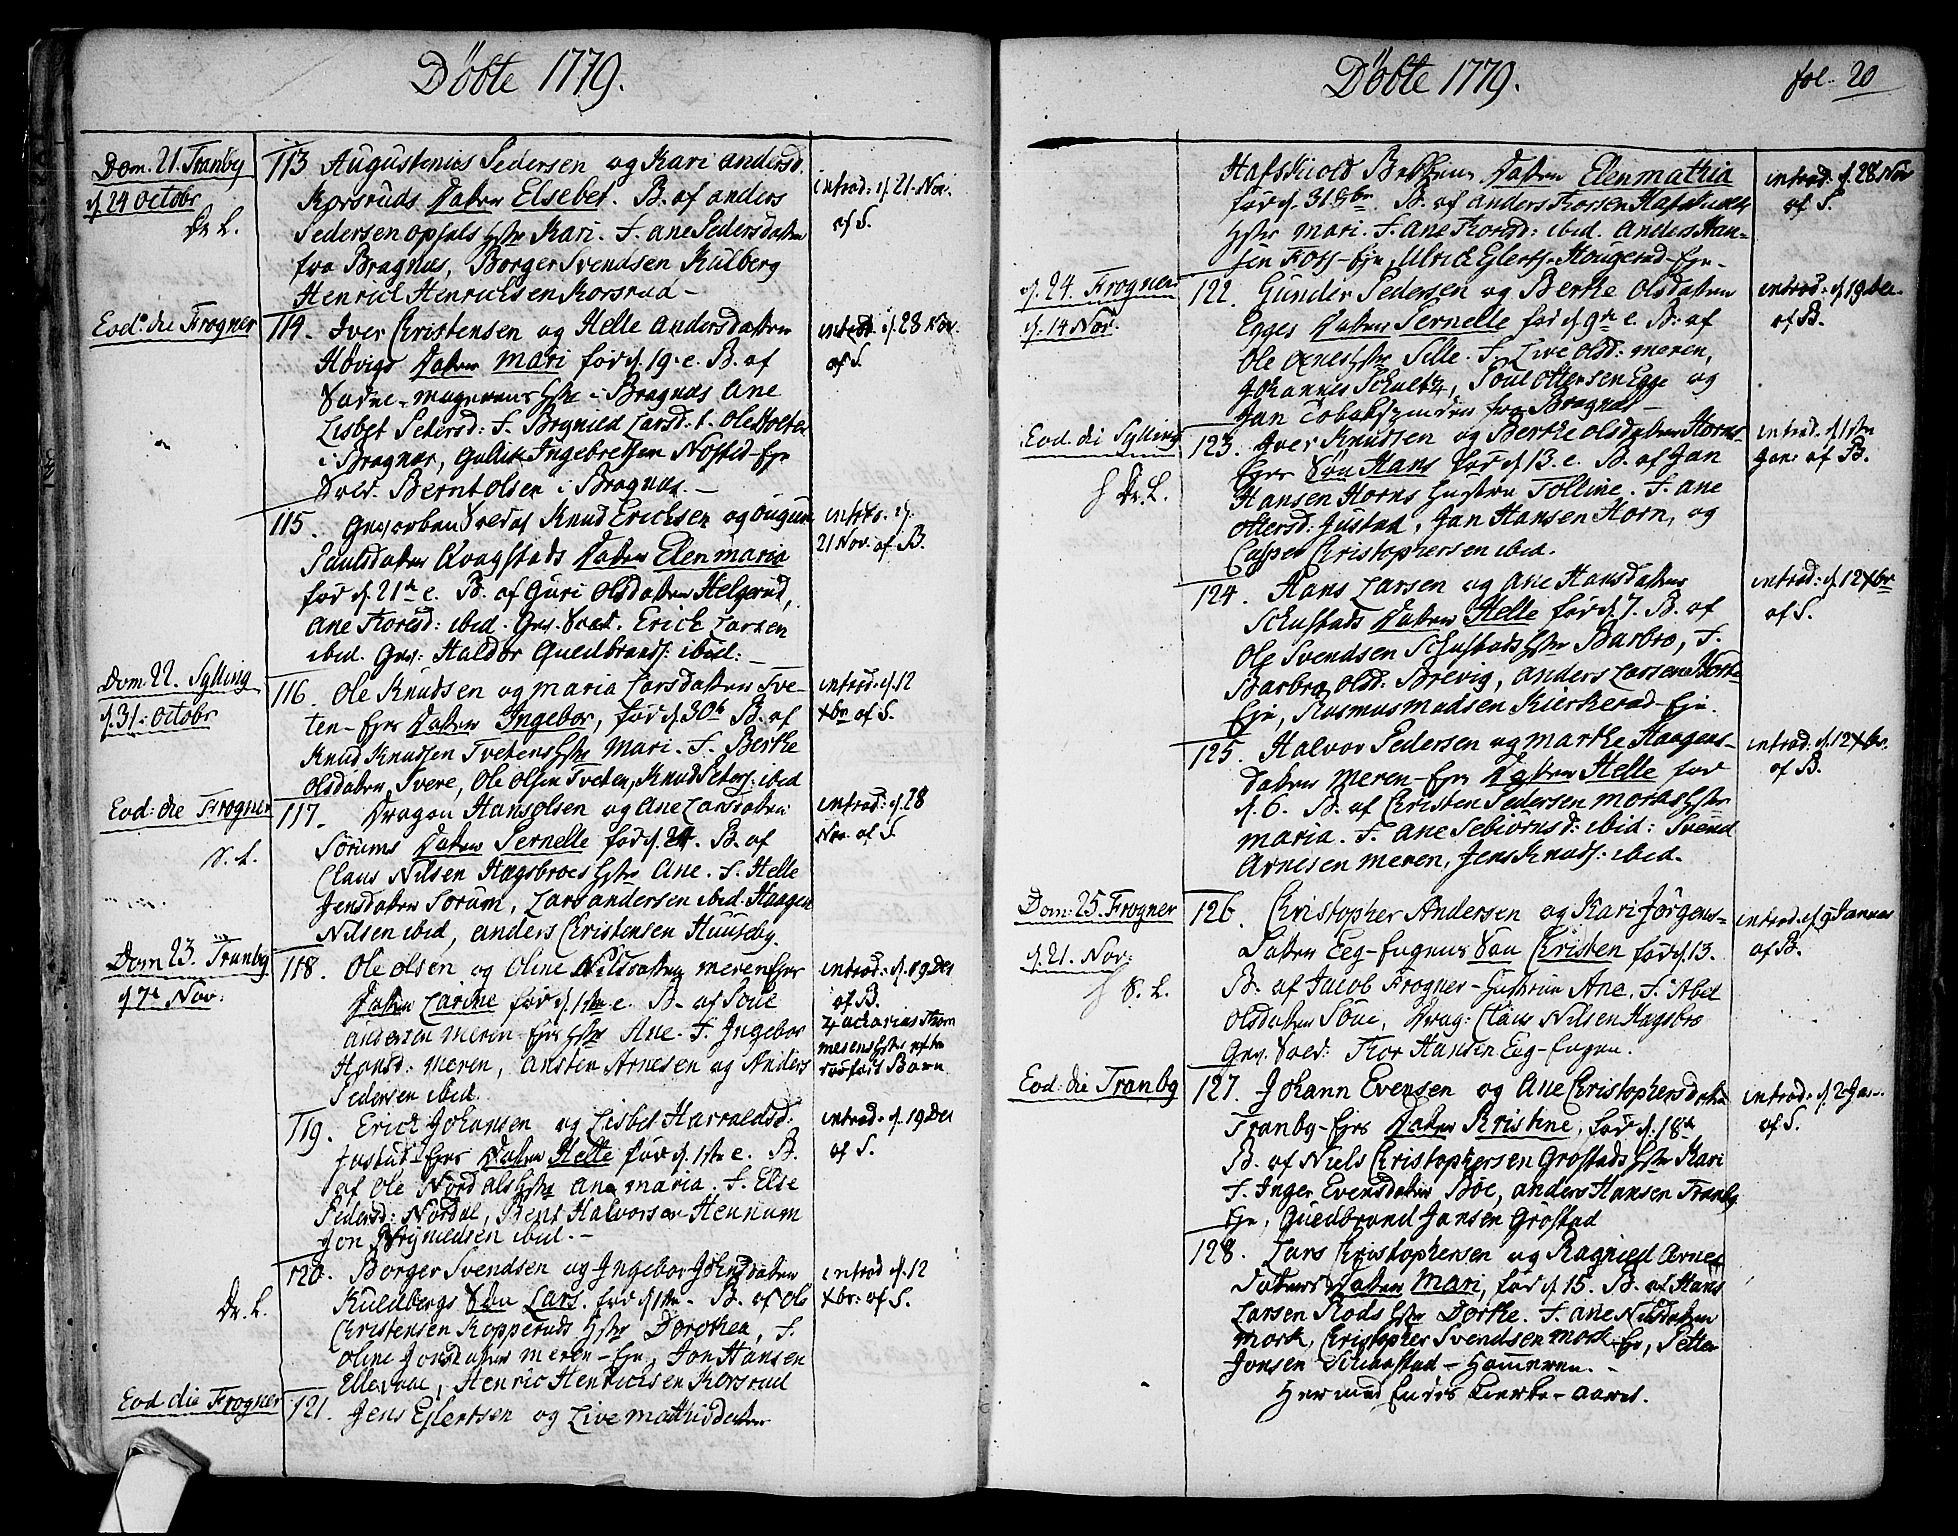 Döbte 1779.
Dom. 21. Tranby
d. 24 Octobr
Dr. L.
113 Augustenius Pedersen og Kari Andersd.
Korsruds Datter Elsebet. B. af Anders
Pedersen Opsals Hstr Kari. F. Ane Pedersdatter
fra Bragnæs, Borger Svendsen Kulberg
Henrich Henrichsen Korsrud –
introd: d. 21. Nov.
af S.
Eod. die Frogner
114. Iver Christensen og Helle Andersdatter
Hövigs Datter Mari fød d. 19. e. B. af
Sadne-magerens Hstr i Bragnæs Ane
Lisbet Petersd: F. Brynild Larsd: t. Ole Holter
i Bragnæs, Gullik Ingebretsen Nøsted-Eje
Sold. Bernt Olsen i Bragnæs. –
introd: d. 28 Nov.
af S.
115. Gevorben Soldat Knud Erichsen og Gugun
Paulsdatter Qvagstads Datter Elen Maria
fød d. 21de e. B. af Guri Olsdatter Helgerud,
Ane Torsd: ibid. Gev. Sold. Erick Larsen
ibid. Gev: Haldor Guldbrands: ibid: –
introd. d.
21 Nov. af B.
Dom. 22. Sylling
d. 31. Octobr
116. Ole Knudsen og Maria Larsdatter Tve-
ten-Ejes Datter Ingebor, fød d. 30te B. af
Knud Knudsen Tvetens Hstr Mari. F. Berthe
Olsdatter Svere, Ole Olsen Tveten, Knud Peters: ibid
introd: d. 12
Xbr af S.
Eod: die Frogner
S. L.
117. Dragon Hans Olsen og Ane Larsdatter
Sørums Datter Pernelle fød d. 24. B. af
Claus Nilsen Hagsbroes Hstr Ane. F. Helle
Jensdatter Sorum, Lars Andersen ibid. Haagen
Nilsen ibid, Anders Christensen Huuseby.
introd: d. 28
Nov. af S.
Dom 23. Tranby
d. 7de Nov:
118. Ole Olsen og Oline Nilsdatter Meren Ejes
Datter Carine fød d. 1ste e. B. af Poue
Andersen Meren-Ejes Hstr Ane. F. Ingebor
Hansd: Meren, Ansten Arnesen og Anders
Pedersen ibid.
introd: d. 19 Dec
af B.
Zacharias Thom
mesens Hstr efter
dødført Barn
119. Erick Johansen og Lisbet Harraldsd:
Justad-Ejes Datter Helle fød d. 1ste e. B.
af Ole Nordals Hstr Ane Maria. F. Else
Pedersd: Nordal, Bent Halvorsen Hennum
Jon Brynildsen ibid. –
introd. d. 19 Dec
af S.
Dr. L.
120. Borger Svendsen og Ingebor Johnsdatter
Kuldbergs Søn Lars. fød d. 1ste. B. af Ole
Christensen Kopperuds Hstr Dorothea, F.
Oline Jonsdatter Meren-Eje, Jon Hansen
Ellevaae, Henric Henrichsen Korsrud
introd d. 12
Xbr: af S.
Eod die Frogner
121. Jens Ejlertsen og Live Mathisdatter
Döbte 1779.
fol. 20
Hafskiold Bakkens Datter Elen Mathia
fød d. 31 8br. B. af Anders Torsen Hafskiolds
Hstr Mari. F. Ane Torsd: ibid. Anders Han-
sen Foss-Eje, Ulrick Ejlerts. Hougerud-Eje.
introd: d. 28 Nov
af S.
d. 24. Frogner
d. 14 Nov.
122. Gunder Pedersen og Berthe Olsdatter
Egges Datter Pernelle fød d. 9de e. B: af
Ole Arnes Hstr Sille. F. Live Olsd: Meren,
Johannes Schultz, Poul Ottersen Egge og
Jan Tobakspinder fra Bragnæs –
introd: d. 19 Dec.
af B.
Eod. die Sylling
Dr. L.
123. Iver Knudsen og Berthe Olsdatter Horns-
Ejes Søn Hans fød d. 13. e. B. af Jan
Hansen Horns Hustru Tolline. F. Ane
Ottersd: Justad, Jan Hansen Horn, og
Casper Christophersen ibid.
introd. d. 1ste
Jan: af B.
124. Hans Larsen og Ane Hansdatter
Schustads Datter Helle fød d. 7. B. af
Ole Svendsen Schustads Hstr Barbro, F.
Barbro Olsd: Brevig, Anders Larsen
Eje, Rasmus Madsen Kierkerud-Eje.
introd: d. 12 Xbr
af S.
125. Halvor Pedersen og Marthe Haagens-
datter Meren-Ejes Datter Helle fød
d. 6. B. af Christen Pedersen Moras Hstr
Maria. F. Ane Sebiörnsd: ibid: Svend
Arnesen Meren, Jens Knuds: ibid.
introd: d. 12 Xbr.
af B.
Dom: 25. Frogner
d. 21. Nov:
S. L.
126. Christopher Andersen og Kari Jörgens-
Datter Eeg-Eugnes Søn Christen fød d. 13.
B. af Jacob Frogner-Hustrue Ane. F. Abel
Olsdatter Poue, Drag: Claus Nilsen Hagsbro
Gev. Sold: Thor Hansen Eeg-Eugen.
introd. d. 9 Januar
af B.
Eod: die Tranby
127. Johann Evensen og Ane Christophersdatter
Tranby-Ejes Datter Kristine, fød d. 18de
B. af Niels Christophersen Grøstads Hstr Kari
F. Inger Evensdatter Bøe, Anders Hansen Tranby
Eje, Guldbrand Jansen Grøstad
introd. d. 2 Jan.
af S.
128. Lars Christophersen og Ragnild Arnes
Datters Datter Mari, fød d. 15. B. af Hans
Larsen Rods Hstr Dorthe. F. Ane Nilsdatter
Mork, Christopher Svendsen Mork-Eje, Petter
Jonsen Schaastad – Hameren. –
Her med Endes Kierke-Aaret.